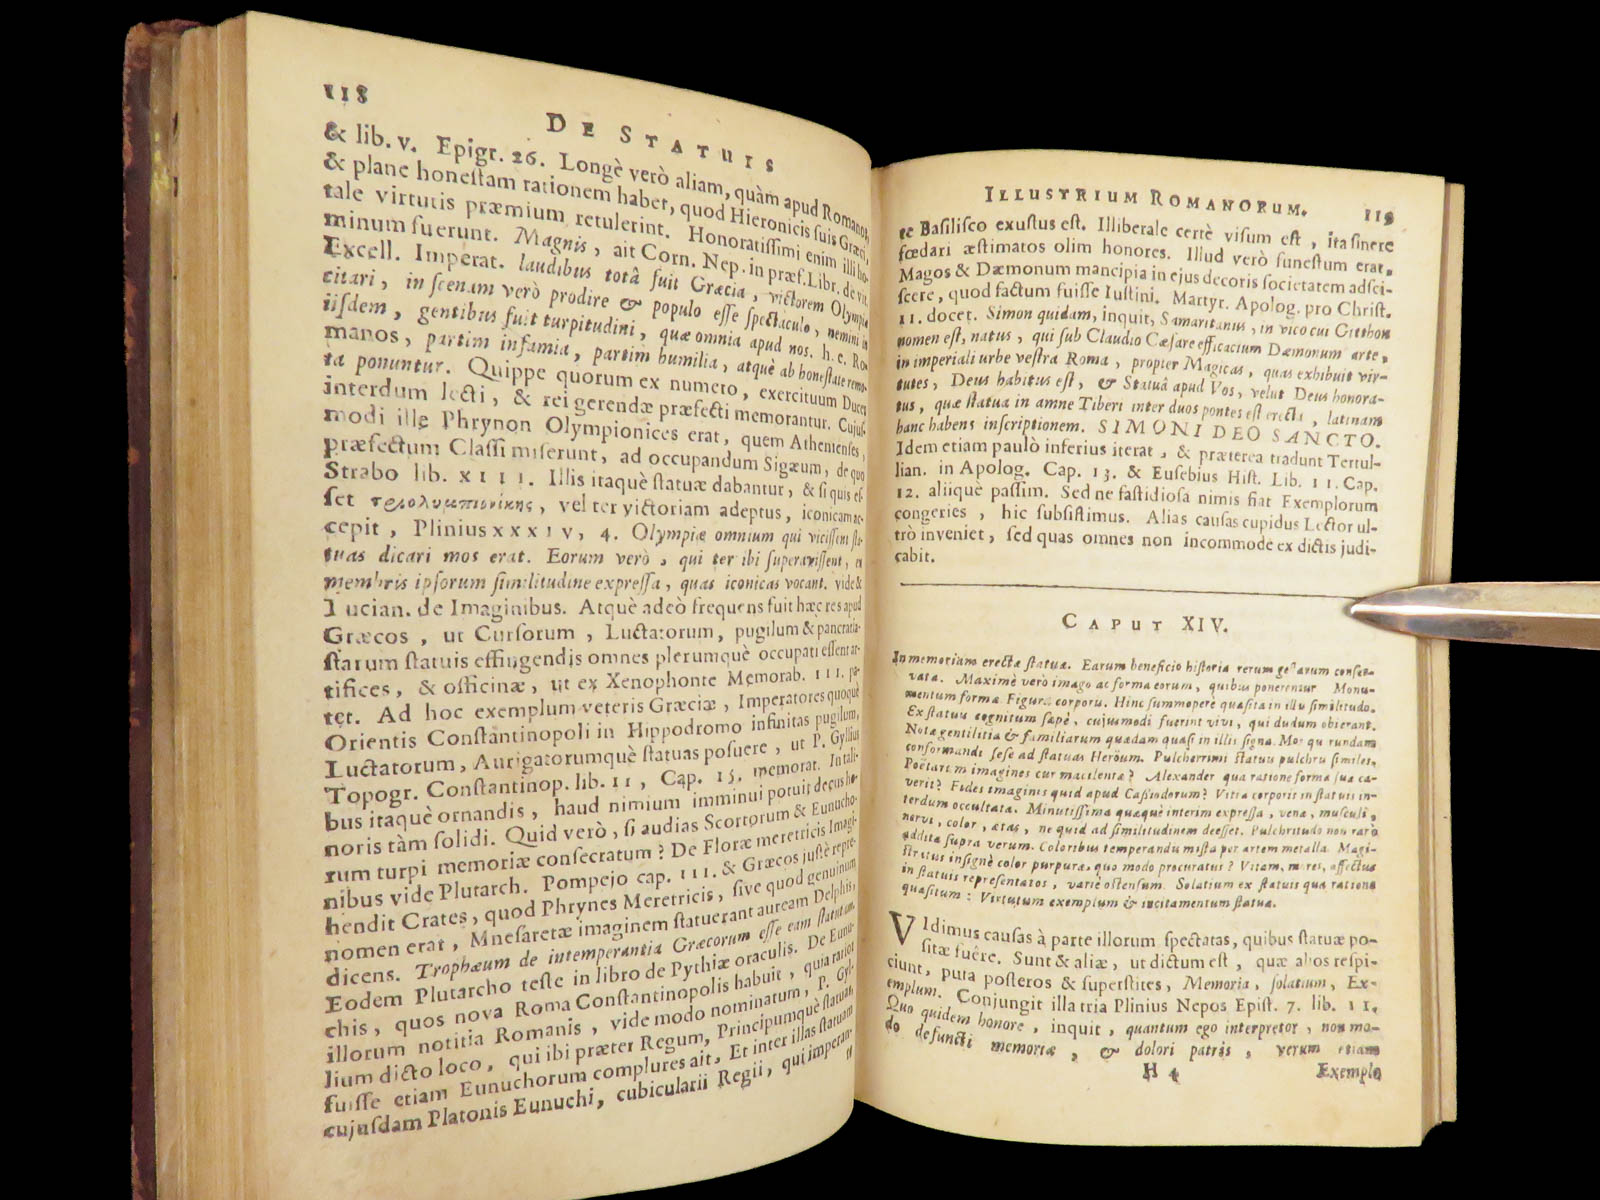 118
DE STATUIS
& lib. v. Epigr. 26. Longè verò aliam, quàm apud Romanos,
& plane honestam rationem habet, quod Hieronicis suis Græci,
tale virtutis præmium retulerint. Honoratissimi enim illi ho-
minum fuerunt. Magnis, ait Corn. Nep. in præf. Libr. de vit.
Excell. Imperat. laudibus totâ fuit Græcia, victorem Olympiæ
citari, in scenam verò prodire & populo esse spectaculo, nemini in
iisdem, gentibus fuit turpitudini, quæ omnia apud nos. h. e. Ro-
manos, partim infamia, partim humilia, atquè ab honestate remo-
ta ponuntur. Quippe quorum ex numero, exercituum Duces
interdum lecti, & rei gerendæ præfecti memorantur. Cujus-
modi ille Phrynon Olympionices erat, quem Athenienses,
præfectum Classi miserunt, ad occupandum Sigæum, de quo
Strabo lib. XIII. Illis itaquè statuæ dabantur, & si quis es-
set τρισολυμπιονίκης, vel ter victoriam adeptus, iconicam ac-
cepit, Plinius XXXIV, 4. Olympiæ omnium qui vicissent sta-
tuas dicari mos erat. Eorum verò, qui ter ibi superavissent, ex
membris ipsorum similitudine expressa, quas iconicas vocant. vide &
Lucian. de Imaginibus. Atquè adeò frequens fuit hæc res apud
Græcos, ut Cursorum, Luctatorum, pugilum & pancratia-
starum statuis effingendis omnes plerumquè occupati essent ar-
tifices, & officinæ, ut ex Xenophonte Memorab. III. pa-
tet. Ad hoc exemplum veteris Græciæ, Imperatores quoquè
Orientis Constantinopoli in Hippodromo infinitas pugilum,
Luctatorum, Aurigatorumquè statuas posuere, ut P. Gyllius
Topogr. Constantinop. lib. II, Cap. 13. memorat. In tali-
bus itaquè ornandis, haud nimium imminui potuit decus ho-
noris tàm solidi. Quid verò, si audias Scortorum & Eunucho-
rum turpi memoriæ consecratum? De Floræ meretricis Imagi-
nibus vide Plutarch. Pompejo cap. III. & Græcos justè repre-
hendit Crates, quod Phrynes Meretricis, sive quod genuinum
nomen erat, Mnesaretæ imaginem statuerant auream Delphis,
dicens. Trophæum de intemperantia Græcorum esse eam statutam.
Eodem Plutarcho teste in libro de Pythiæ oraculis. De Eunu-
chis, quos nova Roma Constantinopolis habuit, quia rarior
illorum notitia Romanis, vide modo nominatum, P. Gyl-
lium dicto loco, qui ibi præter Regum, Principumquè statuas,
fuisse etiam Eunuchorum complures ait, Et inter illas statuam
cujusdam Platonis Eunuchi, cubicularii Regii, qui imperan-
te
ILLUSTRIUM ROMANORUM. 119
te Basilisco exustus est. Illiberale certè visum est, ita sinere
fœdari æstimatos olim honores. Illud verò funestum erat,
Magos & Dæmonum mancipia in ejus decoris societatem adsci-
scere, quod factum fuisse Iustini. Martyr. Apolog. pro Christ.
11. docet. Simon quidam, inquit, Samaritanus, in vico cui Gitthon
nomen est, natus, qui sub Claudio Cæsare efficacium Dæmonum arte,
in imperiali urbe vestra Roma, propter Magicas, quas exhibuit vir-
tutes, Deus habitus est, & Statuâ apud Vos, velut Deus honora-
tus, quæ statua in amne Tiberi inter duos pontes est erecti, latinam
hanc habens inscriptionem. SIMONI DEO SANCTO.
Idem etiam paulò inferius iterat, & præterea tradunt Tertul-
lian. in Apolog. Cap. 13. & Eusebius Hist. Lib. 11. Cap.
12. aliiquè passim. Sed ne fastidiosa nimis fiat Exemplorum
congeries, hic subsistimus. Alias causas cupidus Lector ul-
trò inveniet, sed quas omnes non incommode ex dictis judi-
cabit.
CAPUT XIV.
In memoriam erectæ statuæ. Earum beneficio historia rerum gestarum conser-
vata. Maximè verò imago ac forma eorum, quibus ponerentur Monu-
mentum formæ Figura corporu. Hinc summoperè quæsita in illu similitudo.
Ex statuu cognitum sæpè, cujusmodi fuerint vivi, qui dudum obierant.
Notæ gentilitiæ & familiarum quædam quasi in illis signa. Mos quorundam
conformandi sese ad statuas Heröum. Pulcherrimi statuu pulchru similes.
Poëtarum imagines cur macilentæ? Alexander qua ratione formæ suæ ca-
verit? Fides imaginis quid apud Cassiodorum? Vitia corporis in statuis in-
terdum occultata. Minutissima quæquè interim expressa, venæ, musculi,
nervi, color, ætas, ne quid ad similitudinem deesset. Pulchritudo non rarò
addita supra verum. Coloribus temperandu mista per artem metalla. Magi-
stratus insignè color purpura, quo modo procuratus? Vitam, mores, affectus
in statuis repræsentatos, variè ostensum. Solatium ex statuis qua ratione
quæsitum: Virtutum exemplum & incitamentum statua.
VIdimus causas à parte illorum spectatas, quibus statuæ po-
sitæ fuêre. Sunt & aliæ, ut dictum est, quæ alios respi-
ciunt, puta posteros & superstites, Memoria, solatium, Ex-
emplum. Conjungit illa tria Plinius Nepos Epist. 7. lib. 11.
Quo quidem honore, inquit, quantum ego interpretor, non mo-
do defuncti memoriæ, & dolori patris, verum etiam
H 4 Exemplo